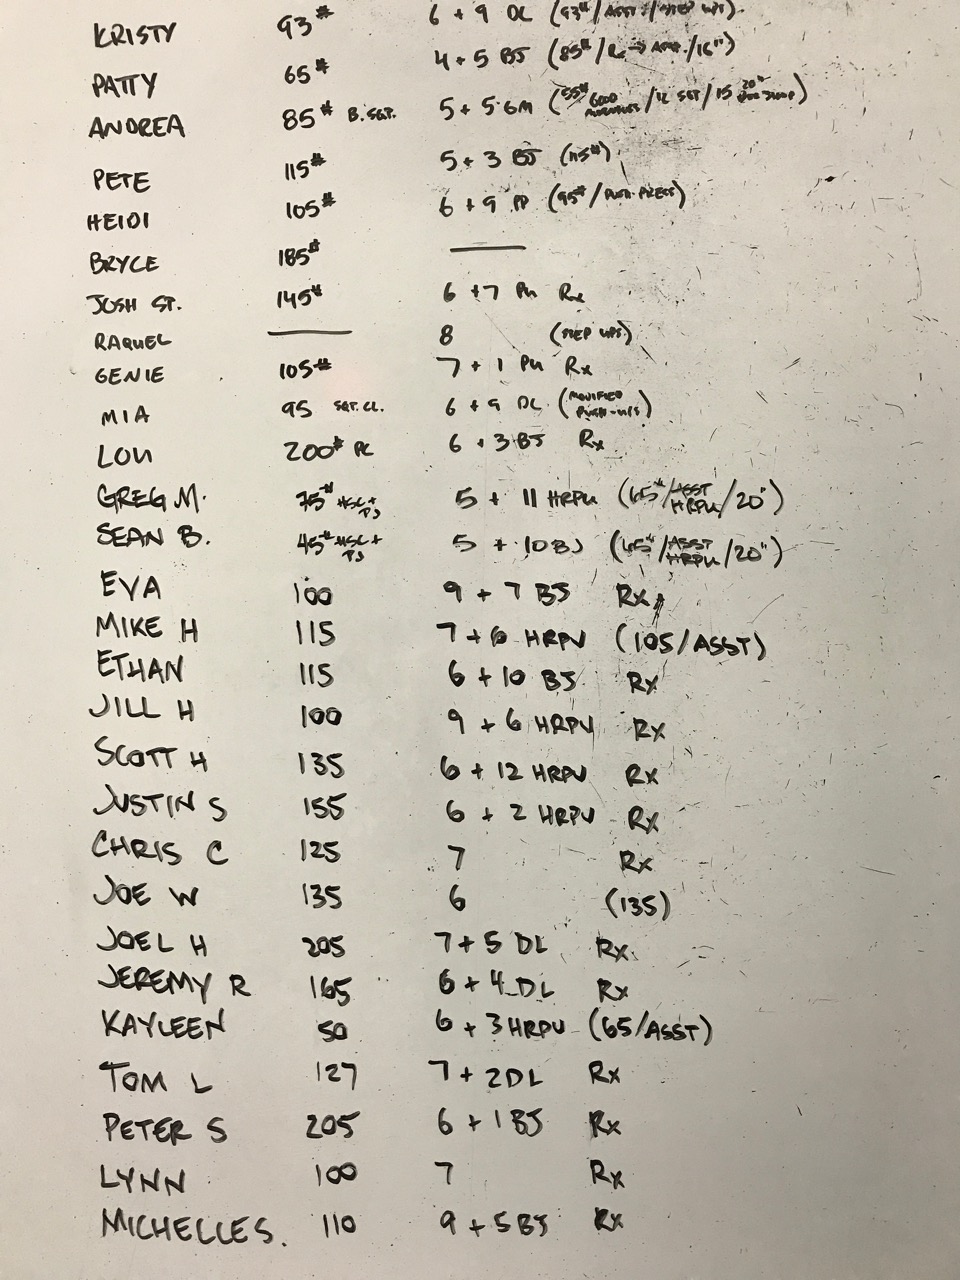 KRISTY 93# 6 + 9 DL (93#/ASST/STEP UPS)
PATTY 65# 4 + 5 BJ (85#/Rx → ASST./16")
ANDREA 85# B.SQT. 5 + 5 GM (55#/GOOD MORNINGS/12 SQT/15 20" BOX JUMP)
PETE 115# 5 + 3 BJ (115#)
HEIDI 105# 6 + 9 PP (95#/PUSH-PRESS)
BRYCE 185# —
JOSH ST. 145# 6 + 7 PU Rx
RAQUEL — 8 (STEP UPS)
GENIE 105# 7 + 1 PU Rx
MIA 95 SQT. CL. 6 + 9 DL (MODIFIED PUSH-UPS)
LOU 200# PC 6 + 3 BJ Rx
GREG M. 75# HSC + PJ 5 + 11 HRPU (65#/ASST HRPU/20")
SEAN B. 45# HSC + PJ 5 + 10 BJ (65#/ASST HRPU/20")
EVA 100 9 + 7 BJ Rx
MIKE H 115 7 + 6 HRPU (105/ASST)
ETHAN 115 6 + 10 BJ Rx
JILL H 100 9 + 6 HRPU Rx
SCOTT H 135 6 + 12 HRPU Rx
JUSTIN S 155 6 + 2 HRPU Rx
CHRIS C 125 7 Rx
JOE W 135 6 (135)
JOEL H 205 7 + 5 DL Rx
JEREMY R 165 6 + 4 DL Rx
KAYLEEN 50 6 + 3 HRPU (65/ASST)
TOM L 127 7 + 2 DL Rx
PETER S 205 6 + 1 BJ Rx
LYNN 100 7 Rx
MICHELLE S. 110 9 + 5 BJ Rx